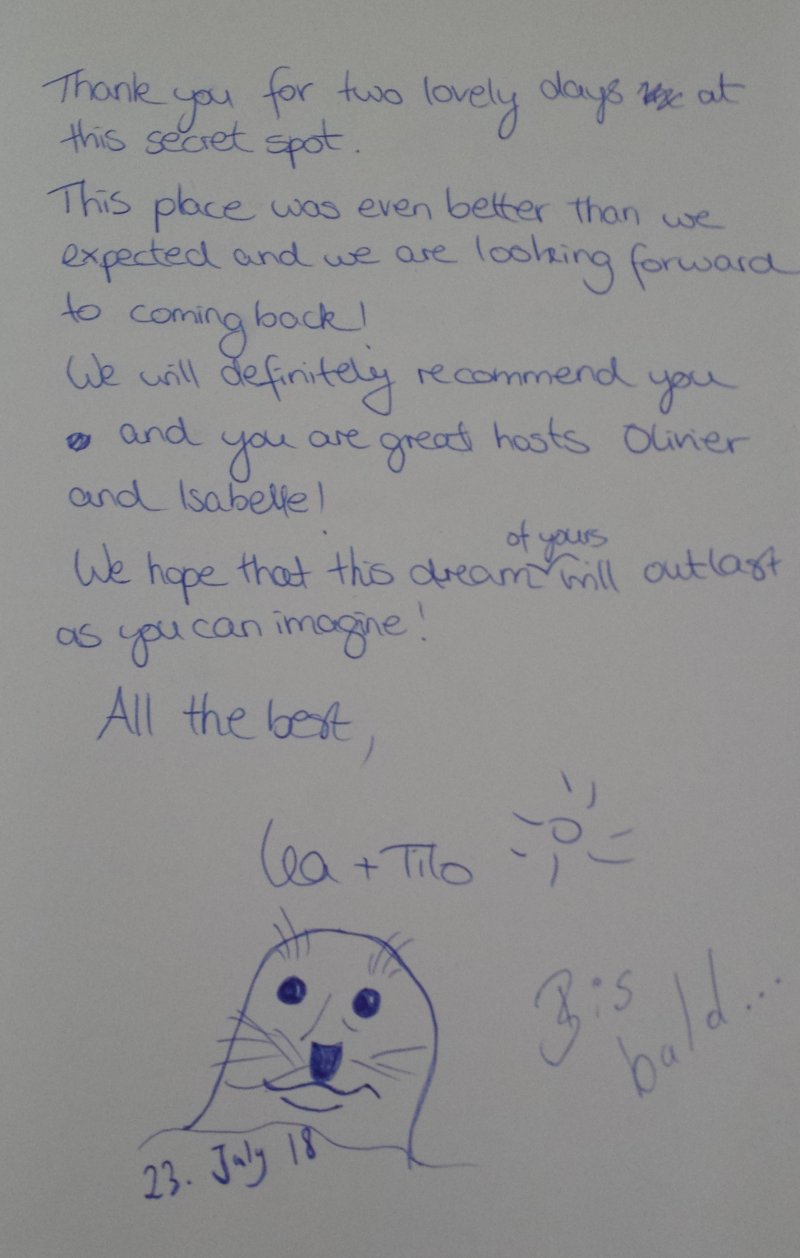 Thank you for two lovely days at
this secret spot.
This place was even better than we
expected and we are looking forward
to coming back!
We will definitely recommend you
and you are great hosts Olivier
and Isabelle!
We hope that this dream of yours will outlast
as you can imagine!
All the best,
Lea + Tilo
Bis
bald...
23. July 18